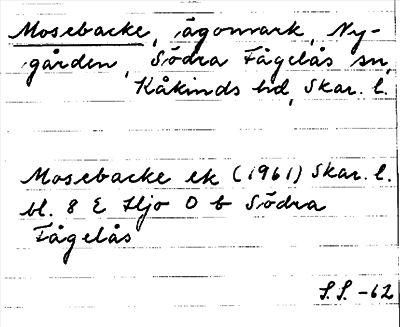 Mosebacke, ägomark, Ny-
gården, Södra Fågelås sn,
Kåkinds hd, Skar. l.
Mosebacke ek (1961) Skar. l.
bl. 8 E Hjo O b Södra
Fågelås
S.S. -62